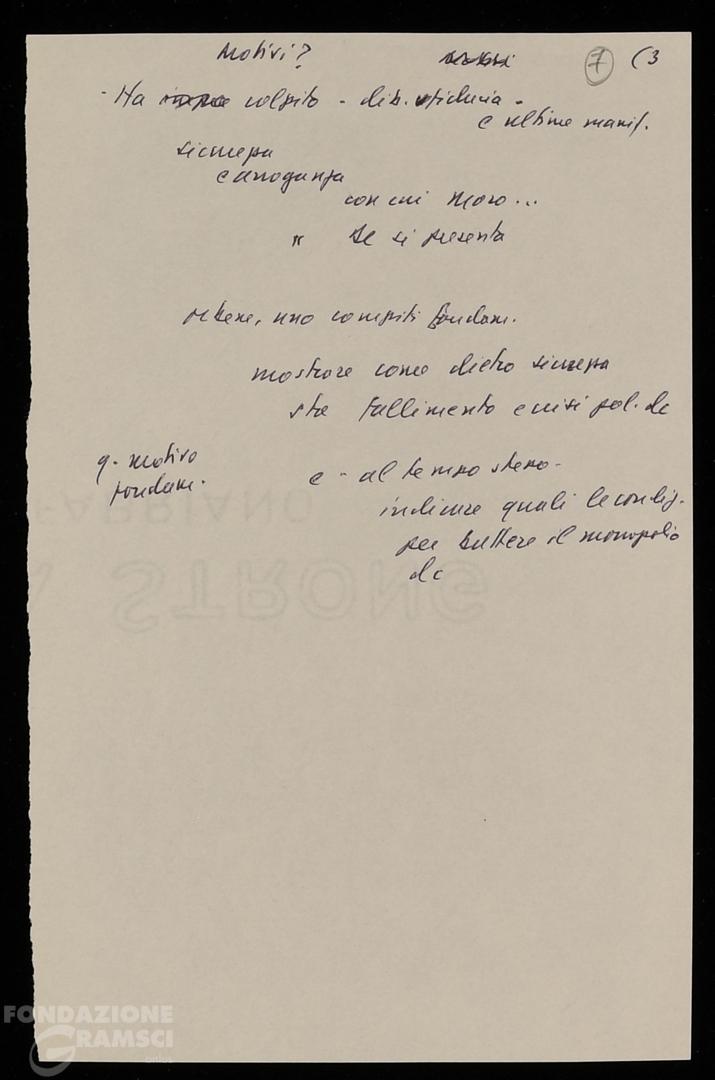 Motivi? 7 (3
- Ha colpito - dib. sfiducia -
e ultime manif.
sicurezza
e arroganza
con cui Moro...
" DC si presenta
ebbene, uno compiti fondam.
mostrare come dietro sicurezza
sta fallimento e crisi pol. dc
q. motivo
fondam.
e - al tempo stesso -
indicare quali le condiz.
per battere il monopolio
dc
FABRIANO
STRONG
FONDAZIONE
GRAMSCI
onlus